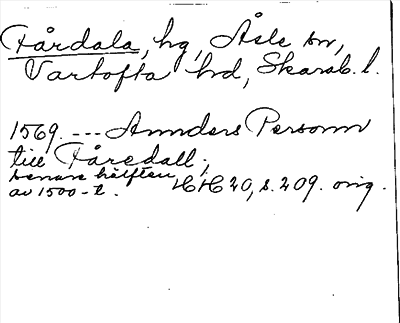 Fårdala, hg, Åsle sn,
Vartofta hd, Skarab. l.
1569. --- Annders Personn
till Fåredall;
senare hälften
av 1500-t. HH 20, s. 209. orig.